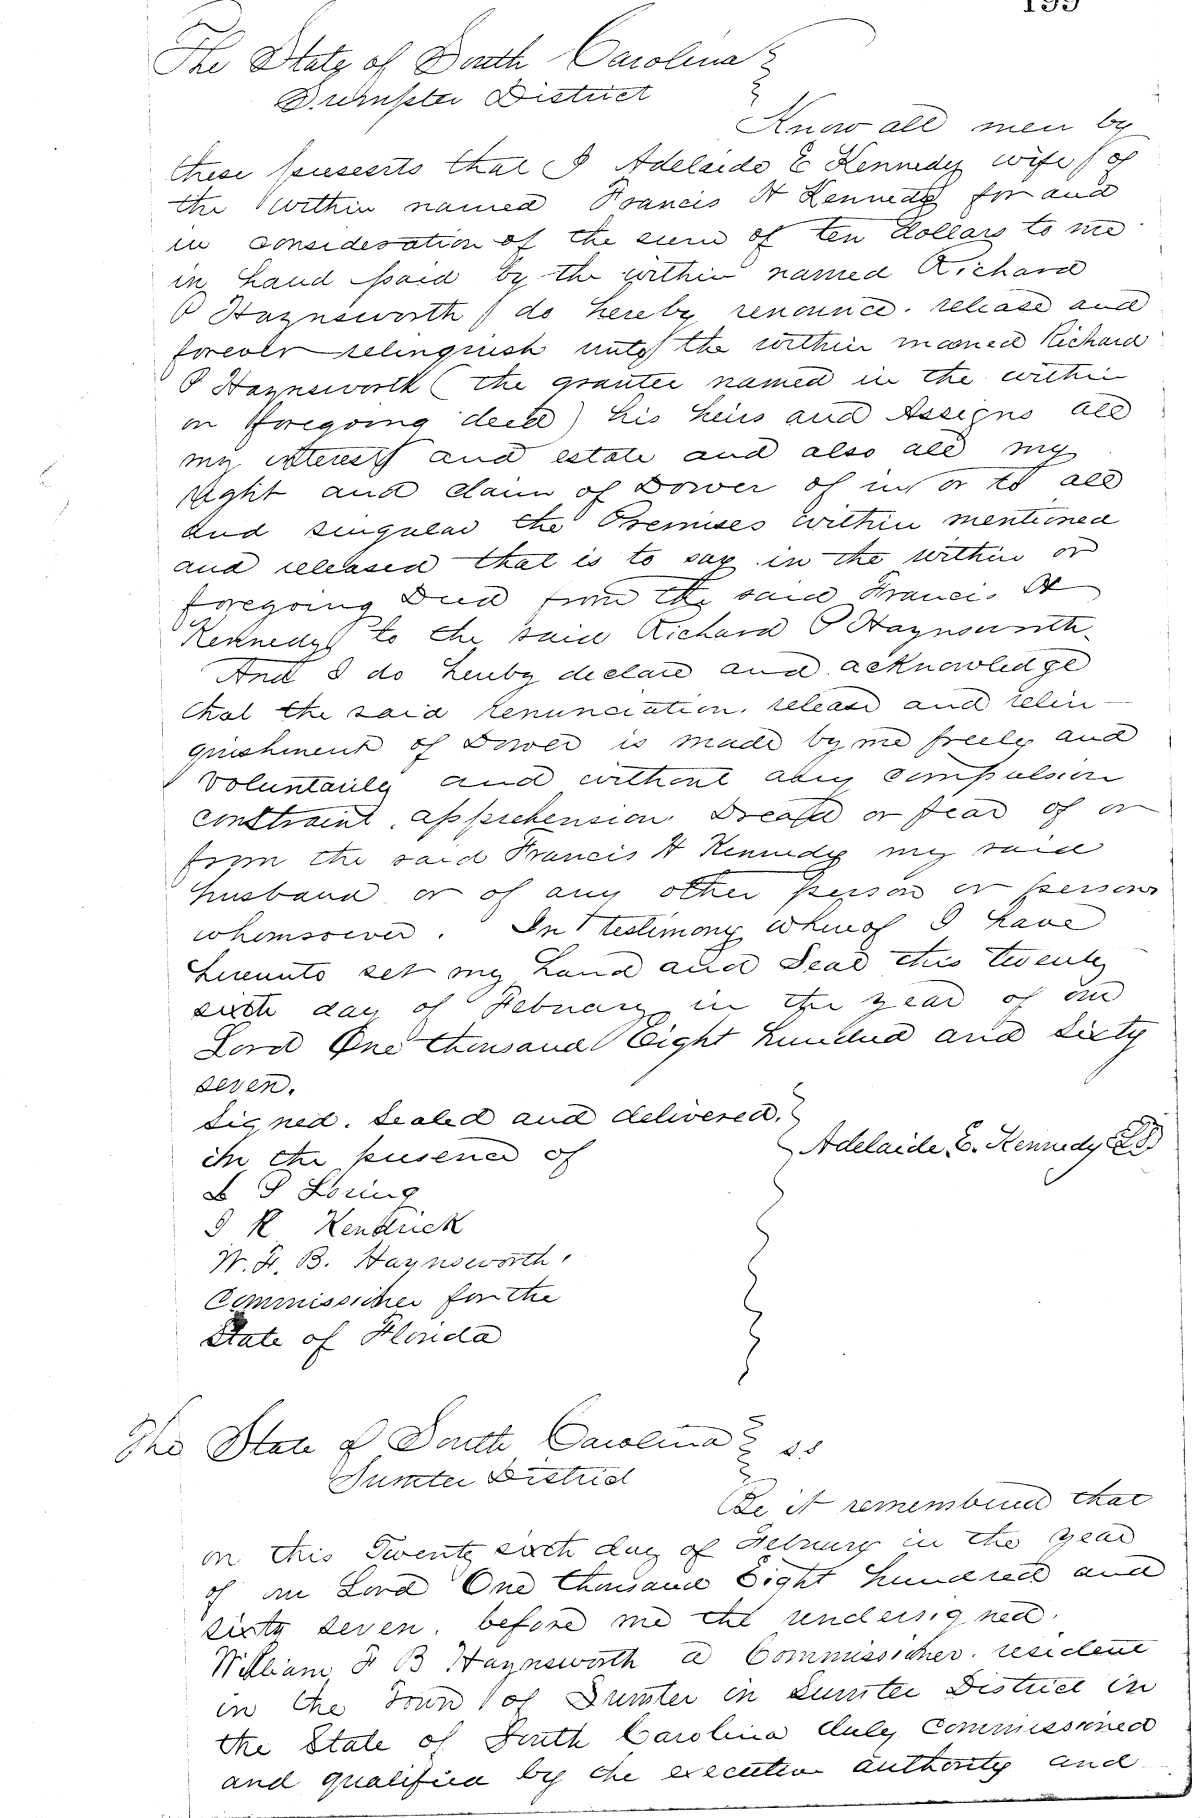 199
The State of South Carolina
Sumpter District
Know all men by
these presents that I Adelaide E Kennedy wife of
the within named Francis H Kennedy for and
in consideration of the sum of ten dollars to me
in hand paid by the within named Richard
P Haynsworth do hereby renounce. release and
forever relinquish unto the within named Richard
P Haynsworth (the grantee named in the within
or foregoing deed) his heirs and Assigns all
my interest and estate and also all my
right and claim of Dower of in or to all
and singular the Premises within mentioned
and released that is to say in the within or
foregoing Deed from the said Francis H
Kennedy to the said Richard P Haynsworth.
And I do hereby declare and acknowledge
that the said renunciation. release and relin-
quishment of Dower is made by me freely and
voluntarily and without any compulsion
constraint. apprehension. Dread or fear of or
from the said Francis H Kennedy my said
husband or of any other person or persons
whomsoever. In testimony whereof I have
hereunto set my hand and Seal this twenty
sixth day of February in the year of our
Lord One thousand Eight hundred and sixty
seven.
Signed. Sealed and delivered.
in the presence of
Adelaide. E. Kennedy LS
L P Loring
J R Kendrick
W. F. B. Haynsworth.
Commissioner for the
State of Florida
The State of South Carolina ss
Sumter District
Be it remembered that
on this Twenty sixth day of Februry in the year
of our Lord One thousand Eight hundred and
sixty seven. before me the undersigned.
William F B Haynsworth a Commissioner. resident
in the Town of Sumter in Sumter District in
the State of South Carolina duly commissioned
and qualified by the executive authority and